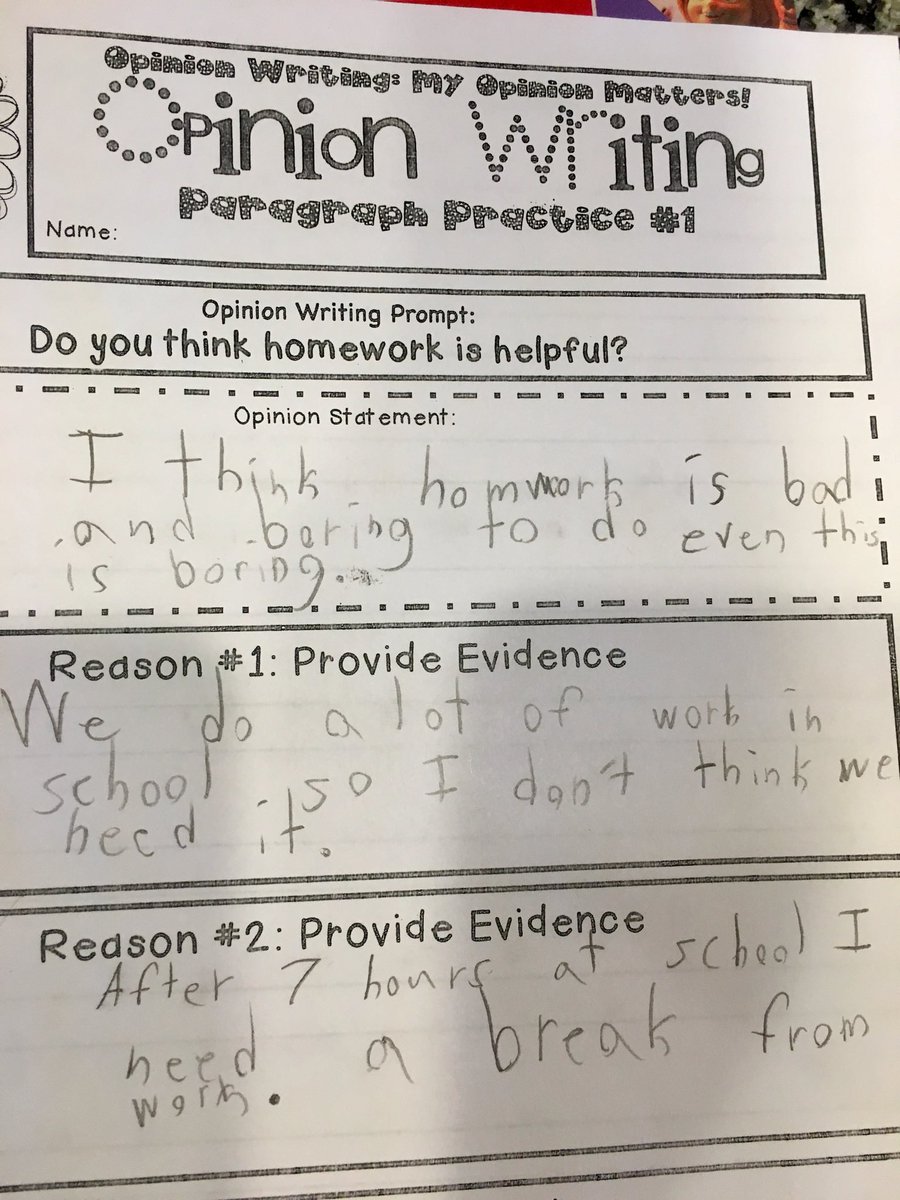 Opinion Writing: My Opinion Matters!
Opinion Writing
Paragraph Practice #1
Name:
Opinion Writing Prompt:
Do you think homework is helpful?
Opinion Statement:
I think homwork is bad
and boring to do even this
is boring.
Reason #1: Provide Evidence
We do a lot of work in
school so I don't think we
need it.
Reason #2: Provide Evidence
After 7 hours at school I
need a break from
work.